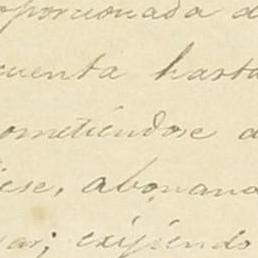 oporcionada d
cuenta hasta
ometiéndose a
iese, abonand
ar; exijiendo